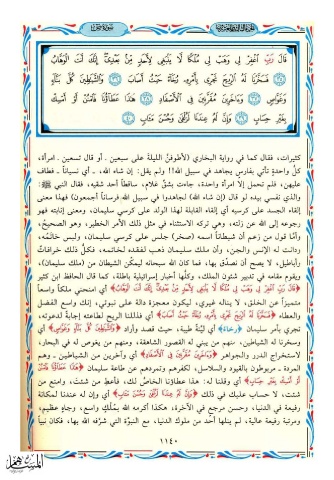 سورة ص
قَالَ رَبِّ اغْفِرْ لِي وَهَبْ لِي مُلْكًا لَا يَنْبَغِي لِأَحَدٍ مِنْ بَعْدِي إِنَّكَ أَنْتَ الْوَهَّابُ
﴿٣٥﴾ فَسَخَّرْنَا لَهُ الرِّيحَ تَجْرِي بِأَمْرِهِ رُخَاءً حَيْثُ أَصَابَ ﴿٣٦﴾ وَالشَّيَاطِينَ كُلَّ بَنَّاءٍ
وَغَوَّاصٍ ﴿٣٧﴾ وَآخَرِينَ مُقَرَّنِينَ فِي الْأَصْفَادِ ﴿٣٨﴾ هَذَا عَطَاؤُنَا فَامْنُنْ أَوْ أَمْسِكْ
بِغَيْرِ حِسَابٍ ﴿٣٩﴾ وَإِنَّ لَهُ عِنْدَنَا لَزُلْفَى وَحُسْنَ مَآبٍ ﴿٤٠﴾
كثيرات، فقال كما في رواية البخاري (لأطوفنّ الليلة على سبعين - أو قال تسعين - امرأة،
كلّ واحدةٍ تأتي بفارس يجاهد في سبيل الله!! ولم يقل: إن شاء الله، - أي نسياناً - فطاف
عليهن، فلم تحمل إلا امرأة واحدة، جاءت بشقّ غلام، ساقطاً أحد شقيه، فقال النبي ﷺ:
والذي نفسي بيده لو قال (إن شاء الله) لجاهدوا في سبيل الله فرساناً أجمعون) فهذا معنى
إلقاء الجسد على كرسيه أي إلقاء القابلة لهذا الولد على كرسي سليمان، ومعنى إنابته فهو
رجوعه إلى الله عن زلته، وهي تركه الاستثناء في مثل ذلك الأمر الخطير، وهو الصحيحُ،
وأمّا قول من زعم أن شيطاناً اسمه (صخر) جلس على كرسي سليمان، ولبس خاتمه،
ودانت له الإنس والجن، وأن ملك سليمان ذهب لفقده لخاتمه، فكلّ ذلك خرافاتٌ
وأباطيل، لا يصح أن نصدّق بها، فما كان الله سبحانه ليمكّن الشيطان من (ملك سليمان)،
ويقوم مقامه في تدبير شئون الملك، وكلّها أخبار إسرائيلية باطلة، كما قال الحافظ ابن كثير
﴿قَالَ رَبِّ اغْفِرْ لِي وَهَبْ لِي مُلْكًا لَا يَنْبَغِي لِأَحَدٍ مِنْ بَعْدِي إِنَّكَ أَنْتَ الْوَهَّابُ﴾ أي امنحني ملكاً واسعاً
متميزاً عن الخلق، لا يناله غيري، ليكون معجزة دالة على نبوتي، إنك واسع الفضل
والعطاء ﴿فَسَخَّرْنَا لَهُ الرِّيحَ تَجْرِي بِأَمْرِهِ رُخَاءً حَيْثُ أَصَابَ﴾ أي فذللنا الريح لطاعته إجابةً لدعوته،
تجري بأمر سليمان ﴿رُخَاءً﴾ أي ليّنةً طيبة، حيث قصد وأراد ﴿وَالشَّيَاطِينَ كُلَّ بَنَّاءٍ وَغَوَّاصٍ﴾ أي
وسخرنا له الشياطين، منهم من يبني له القصور الشاهقة، ومنهم من يغوص له في البحار،
لاستخراج الدرر والجواهر ﴿وَآخَرِينَ مُقَرَّنِينَ فِي الْأَصْفَادِ﴾ أي وآخرين من الشياطين - وهم
المردة - مربوطون بالقيود والسلاسل، لكفرهم وتمردهم عن طاعة سليمان ﴿هَذَا عَطَاؤُنَا فَامْنُنْ
أَوْ أَمْسِكْ بِغَيْرِ حِسَابٍ﴾ أي وقلنا له: هذا عطاؤنا الخاصّ لك، فأعطِ من شئت، وامنع من
شئت، لا حساب عليك في ذلك ﴿وَإِنَّ لَهُ عِنْدَنَا لَزُلْفَى وَحُسْنَ مَآبٍ﴾ أي وإن له عندنا لمكانة
رفيعة في الدنيا، وحسن مرجع في الآخرة، هكذا أكرمه الله بمُلكٍ واسع، وجاهٍ عظيم،
ومرتبة رفيعة عالية، لم ينلها أحد من ملوك الدنيا، مع النبوّة التي شرّفه الله بها، فكان نبياً
١١٤٠